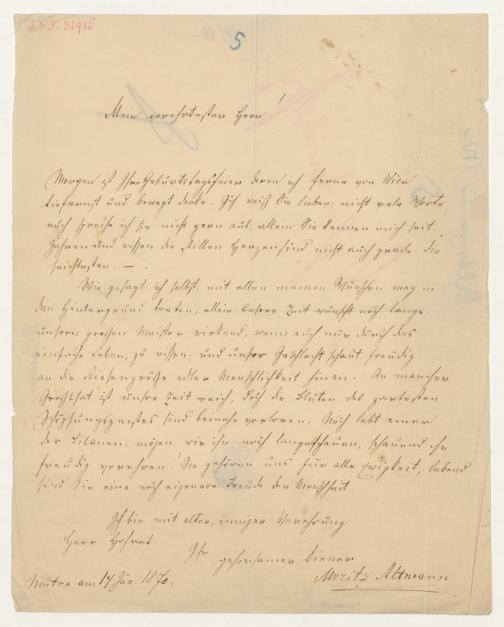 I. N. 32915
5
Mein verehrtester Herr!
Morgen ist Ihre Geburtstagsfeier deren ich ferne von Wien
tiefernst und bewegt denke. Ich weiß Sie lieben nicht viele Worte,
auch spreche ich sie nicht gern aus, allein Sie kennen mich seit
Jahren und wissen die stillen Herzen sind nicht auch grade die
seichtesten. —.
Wie gesagt ich selbst, mit allen meinen Wünschen mag in
den Hintergrund treten, allein unsere Zeit wünscht noch lange
unsern großen Meister wirkend, wenn auch nur durch das
einfache Leben, zu wissen; und unser Geschlecht schaut freudig
an die Riesengröße edler Menschlichkeit hinan. An mancher
Großthat ist unsre Zeit reich, doch die Blüten des zartesten
Schöpfungsgeistes sind beinahe verloren. Noch lebt einer
der Titanen, mögen wir ihn noch lange schauen, schauend ihn
freudig verehren! Sie gehören uns für alle Ewigkeit, lebend
sind Sie eine noch eigenere Freude der Menschheit.
Ich bin mit alter, inniger Verehrung
Herr Hofrat
Ihr gehorsamer Diener
Moritz Altmann
Neutra am 14 Jän. 1870.